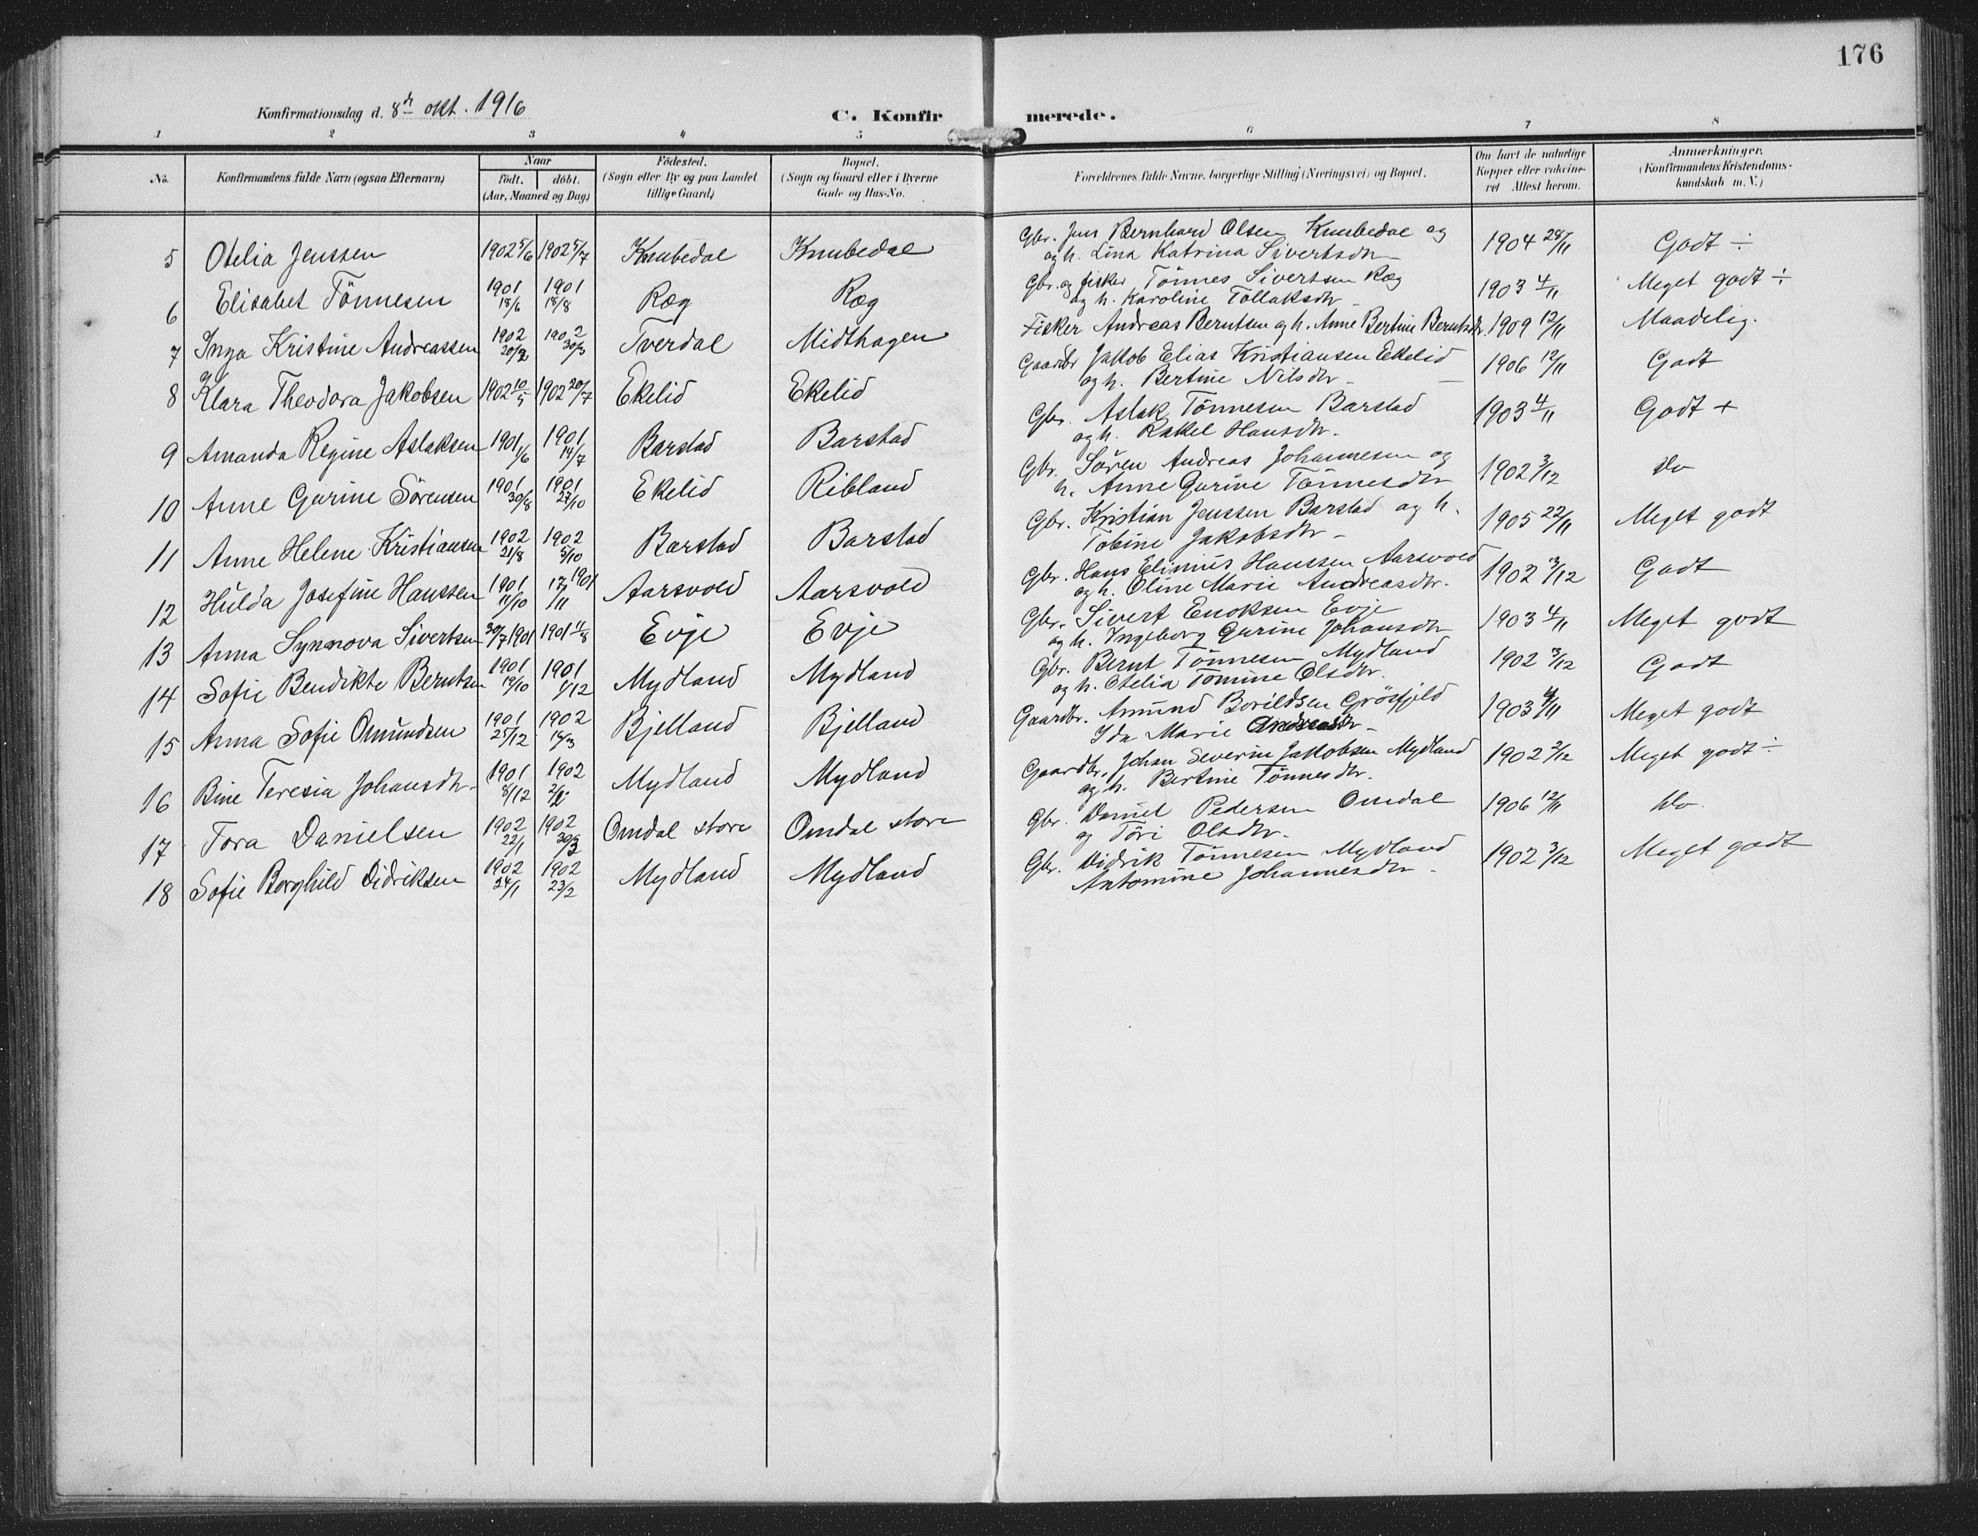 176
Konfirmationsdag d. 8de okt. 1916 C. Konfirmerede.
1 2 3 4 5 6 7 8
No. Konfirmandens fulde Navn (ogsaa Efternavn) Naar födt. döbt. (Aar, Maaned og Dag) Födested. (Sogn eller By og paa Landet tillige Gaard) Bopæl. (Sogn og Gaard eller i Byerne Gade og Hus-No. Forældrenes fulde Navne, borgerlige Stilling (Næringsvei) og Bopæl. Om havt de naturlige Kopper eller vakcineret Attest herom. Anmærkninger. (Konfirmandens Kristendomskundskab m.V.)
5 Otelia Jenssen 1902 5/6 1902 5/7 Knubedal Knubedal Gbr. Jens Bernhard Olsen Knubedal og
h. Lina Katrina Sivertsdtr 1904 28/11 Godt ÷
6 Elisabet Tönnesen 1901 18/6 1901 18/8 Ræg Ræg Gbr. og fisker Tönnes Sivertsen Ræg
og h. Karoline Tollaksdtr 1903 4/11 Meget godt ÷
7 Inga Kristine Andreassen 1902 20/2 1902 30/3 Tverdal Midthagen Fisker Andreas Berntsen og h. Anne Bertine Berntsdtr. 1909 12/11 Maadelig.
8 Klara Theodora Jakobsen 1902 10/5 1902 20/7 Ekelid Ekelid Gaardbr Jakob Elias Kristiansen Ekelid
og h. Bertine Nilsdtr 1906 12/11 Godt
9 Amanda Regine Aslaksen 1901 1/6 1901 14/7 Barstad Barstad Gbr. Aslak Tönnesen Barstad
og h. Rakel Hansdtr. 1903 4/11 Godt +
10 Anne Gurine Sörensen 1901 30/8 1901 27/10 Ekelid Ribland Gbr. Sören Andreas Johannesen og
h. Anne Gurine Tönnesdtr 1902 3/12 do
11 Anne Helene Kristiansen 1902 21/8 1902 5/10 Barstad Barstad Gbr. Kristian Jenssen Barstad og h.
Tobine Jakobsdtr 1905 22/11 Meget godt
12 Hulda Josefine Hanssen 1901 11/10 17/11 1901 Aarsvold Aarsvold Gbr. Hans Elinius Hanssen Aarsvold
og h. Oline Marie Andreasdtr. 1902 3/12 Godt
13 Anna Synnova Sivertsen 30/7 1901 1901 11/8 Evje Evje Gbr. Sivert Enoksen Evje
og h. Ingeborg Gurine Johansdtr 1903 4/11 Meget godt
14 Sofie Bendikte Berntsen 1901 19/10 1901 1/12 Mydland Mydland Gbr. Bernt Tönnesen Mydland
og h. Otelia Tomine Olsdtr. 1902 3/12 Godt
15 Anna Sofie Omundsen 1901 25/12 1902 14/3 Bjelland Bjelland Gaardbr. Amund Bovildsen Grösfjeld
Ida Marie Andreasdtr 1903 4/11 Meget godt
16 Bine Teresia Johansdtr 1901 8/12 1902 2/2 Mydland Mydland Gaardbr. Johan Severin Jakobsen Mydland
og h. Bertine Tönnesdtr. 1902 3/12 Meget godt ÷
17 Tora Danielsen 1902 22/1 1902 30/3 Omdal store Omdal store Gbr. Daniel Pedersen Omdal
og Töri Olsdtr. 1906 12/11 do.
18 Sofie Borghild Didriksen 1902 24/1 1902 23/2 Mydland Mydland Gbr. Didrik Tönnesen Mydland
Antomine Johannesdtr 1902 3/12 Meget godt